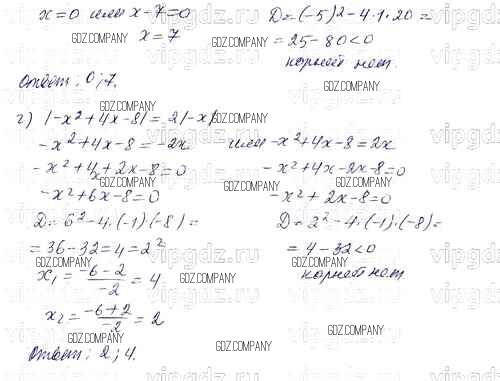 x=0 или x-7=0
x=7
D=(-5)²-4·1·20=
=25-80<0
корней нет.
Ответ: 0;7.
г) |-x²+4x-8|=2|-x|
-x²+4x-8=-2x
-x²+4x+2x-8=0
-x²+6x-8=0
D=6²-4·(-1)·(-8)=
=36-32=4=2²
x₁=(-6-2)/(-2)=4
x₂=(-6+2)/(-2)=2
Ответ: 2;4.
или -x²+4x-8=2x
-x²+4x-2x-8=0
-x²+2x-8=0
D=2²-4·(-1)·(-8)=
=4-32<0
корней нет
GDZ.COMPANY
vipgdz.ru